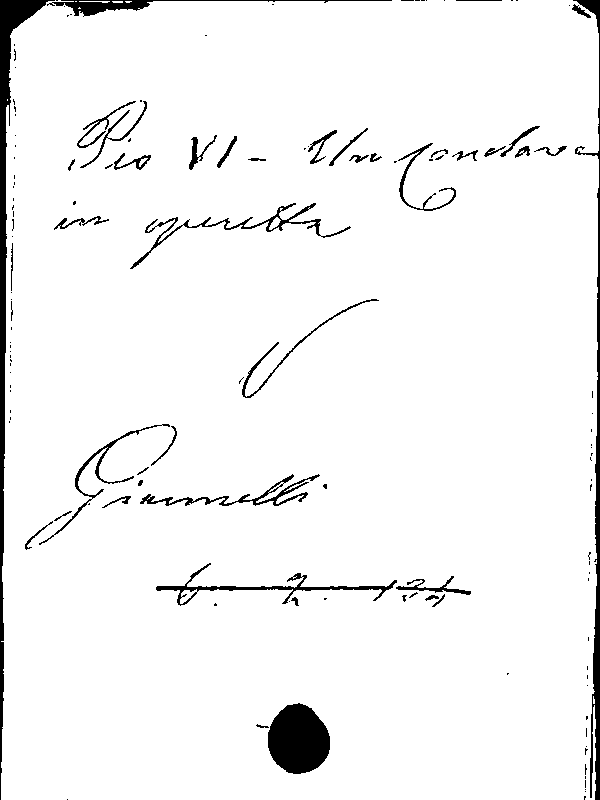 Pio VI - Un Conclave
in operetta
V
Giannelli
6. 2.